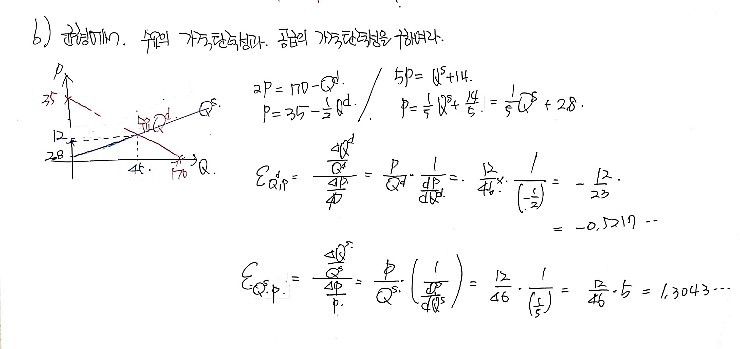 b) 균형에서, 수요의 가격탄력성과, 공급의 가격탄력성을 구하여라.
P
35
12
2.8
Q^s.
Q^d
46.
70
Q.
2P = 70 - Q^d / 5P = Q^s + 14.
P = 35 - 1/2 Q^d. P = 1/5 Q^s + 14/5 = 1/5 Q^s + 2.8.
ε_{Q^d,P} = (ΔQ^d/Q^d)/(ΔP/P) = P/Q^d · 1/(dP/dQ^d) = 12/46 · 1/(-1/2) = -12/23.
= -0.5217 ...
ε_{Q^s.P.} = (ΔQ^s/Q^s)/(ΔP/P.) = P/Q^s. · (1/(dP/dQ^s)) = 12/46 · 1/(1/5) = 12/46 · 5 = 1.3043 ...